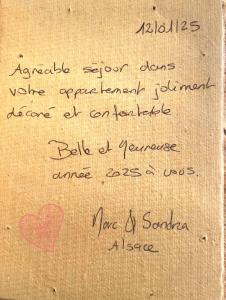 12/01/25
Agréable séjour dans
votre appartement joliment
décoré et confortable
Belle et Heureuse
année 2025 à vous.
Marc & Sandra
Alsace